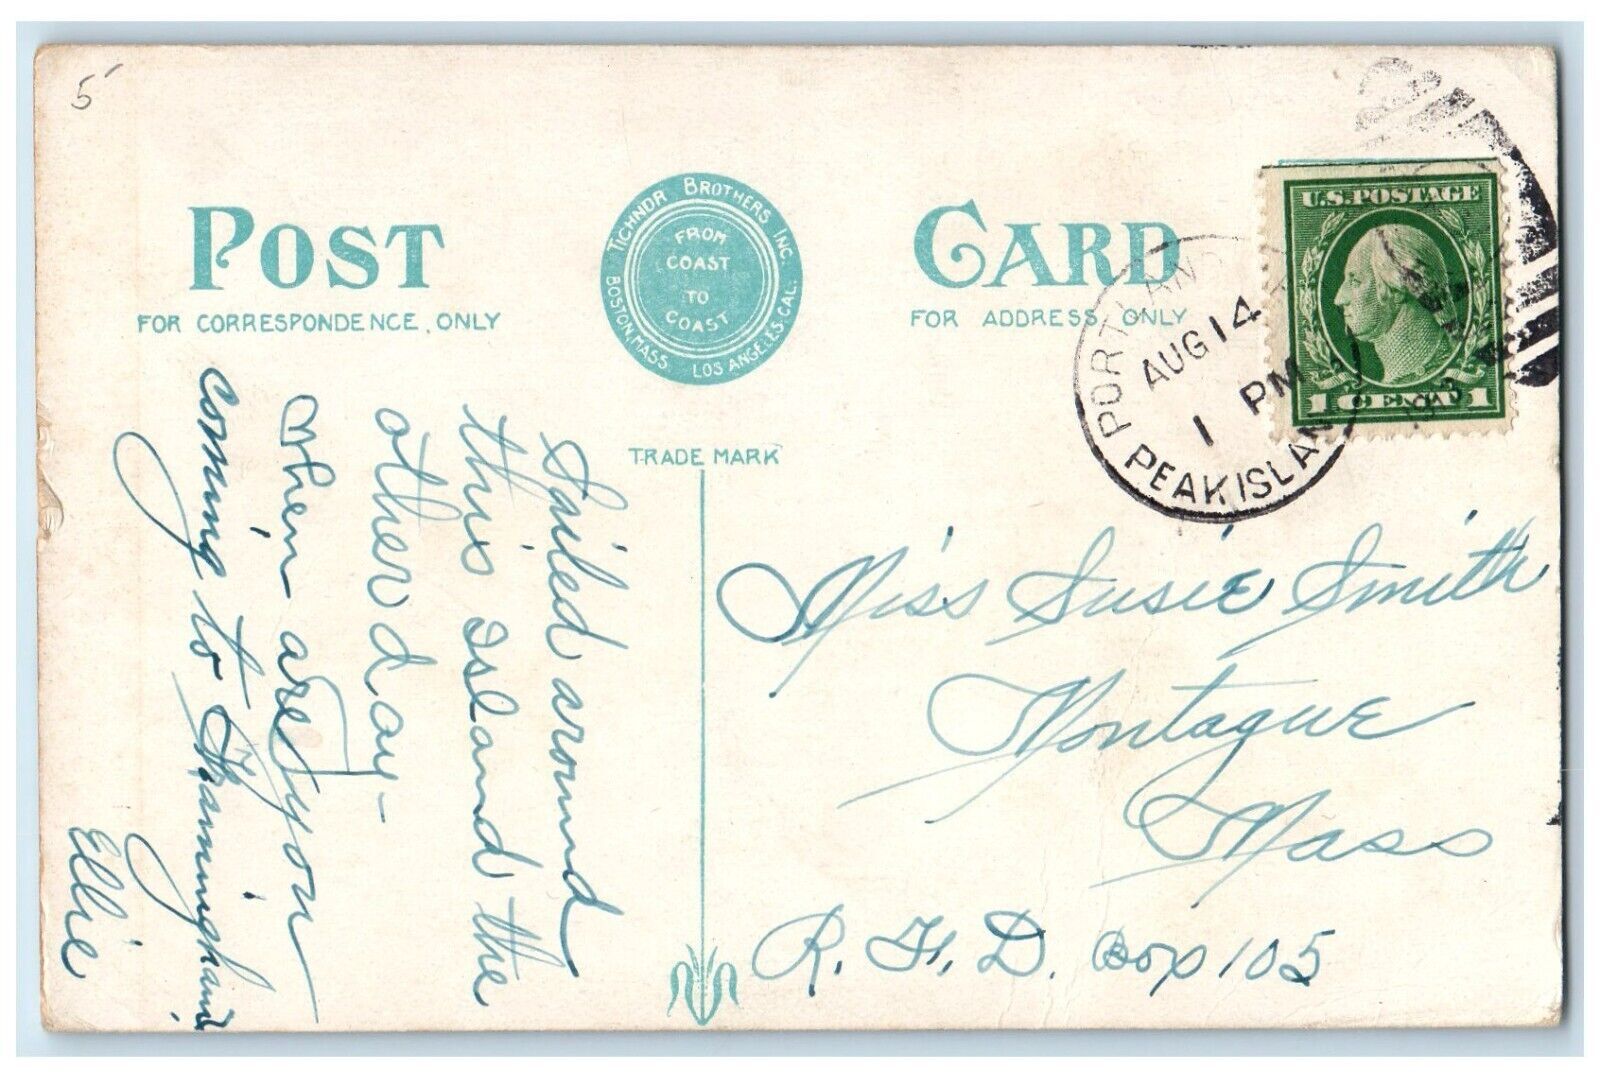 5
POST CARD
TICHNOR BROTHERS INC.
BOSTON, MASS. LOS ANGELES, CAL.
FROM
COAST
TO
COAST
FOR CORRESPONDENCE ONLY
FOR ADDRESS ONLY
TRADE MARK
U.S. POSTAGE
1 CENT 1
PORTLAND
AUG 14
1 PM
PEAK ISLAN
Sailed around
this Island the
other day -
When are you
coming to Framingham
Ellie
Miss Susie Smith
Montague
Mass
R. F. D. Box 105